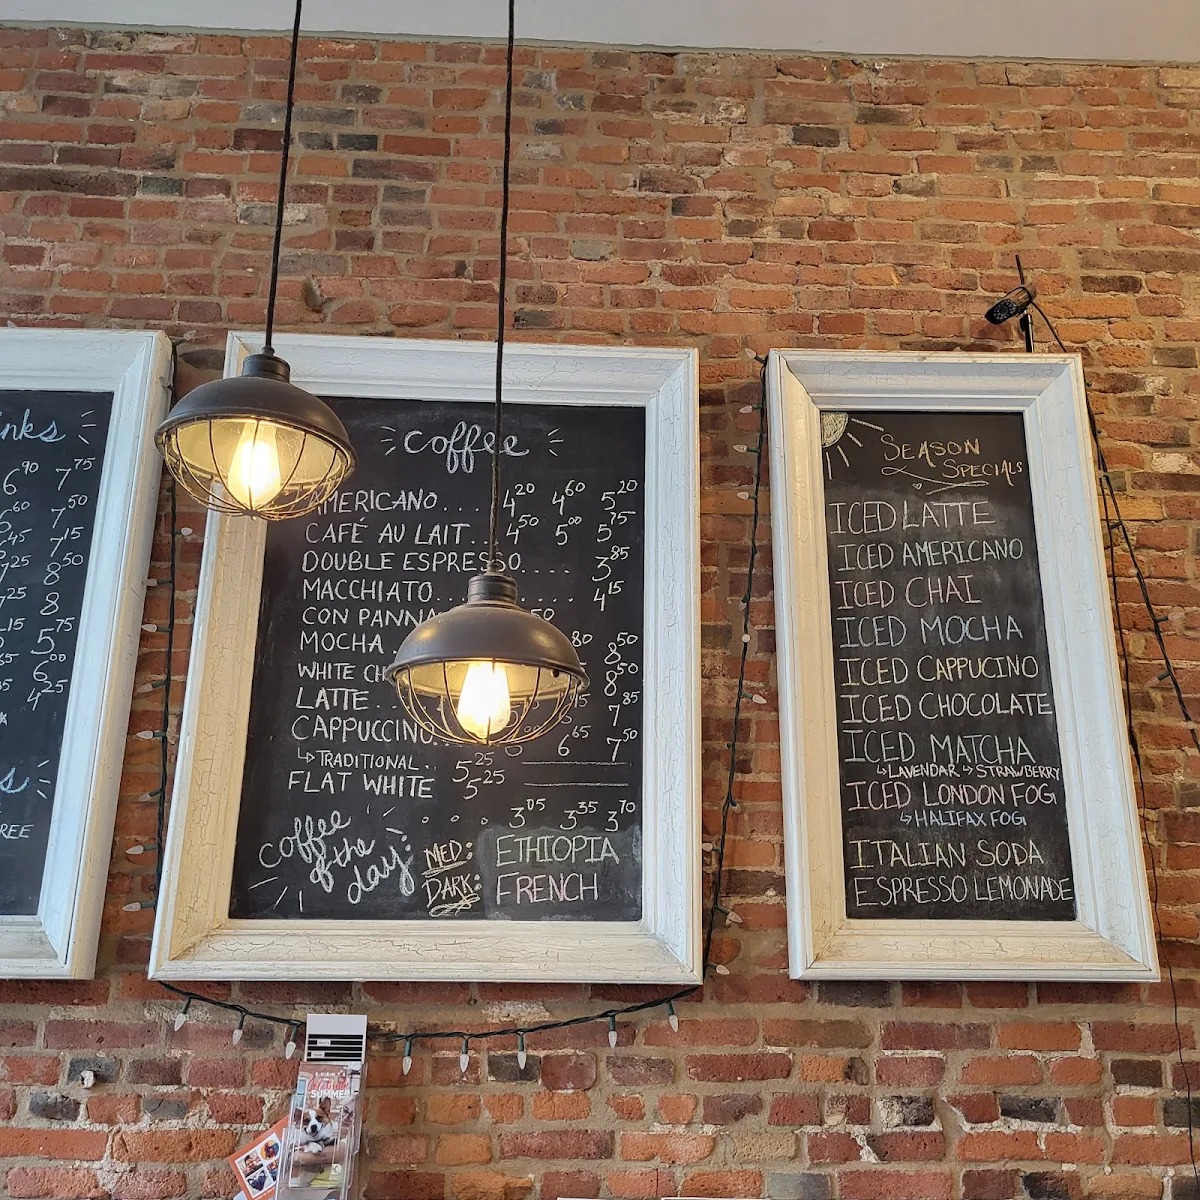 6⁹⁰ 7⁷⁵
⁶⁰ 7⁵⁰
⁴⁵ 7¹⁵
²⁵ 8⁵⁰
²⁵ 8
¹⁵ 5⁷⁵
6⁰⁰
4²⁵
coffee
AMERICANO.... 4²⁰ 4⁶⁰ 5²⁰
CAFÉ AU LAIT.. 4⁵⁰ 5⁰⁰ 5⁷⁵
DOUBLE ESPRESSO.... 3⁸⁵
MACCHIATO........ 4¹⁵
CON PANNA
MOCHA . 8⁵⁰
WHITE 8⁵⁰
LATTE.. 7⁸⁵
CAPPUCCINO.. 6⁶⁵ 7⁵⁰
↳TRADITIONAL.. 5²⁵
FLAT WHITE 5²⁵
coffee of the day: 3⁰⁵ 3³⁵ 3⁷⁰
MED: ETHIOPIA
DARK: FRENCH
SEASON
SPECIALS
ICED LATTE
ICED AMERICANO
ICED CHAI
ICED MOCHA
ICED CAPPUCINO
ICED CHOCOLATE
ICED MATCHA
↳LAVENDAR ↳STRAWBERRY
ICED LONDON FOG
↳HALIFAX FOG
ITALIAN SODA
ESPRESSO LEMONADE
SUMMER